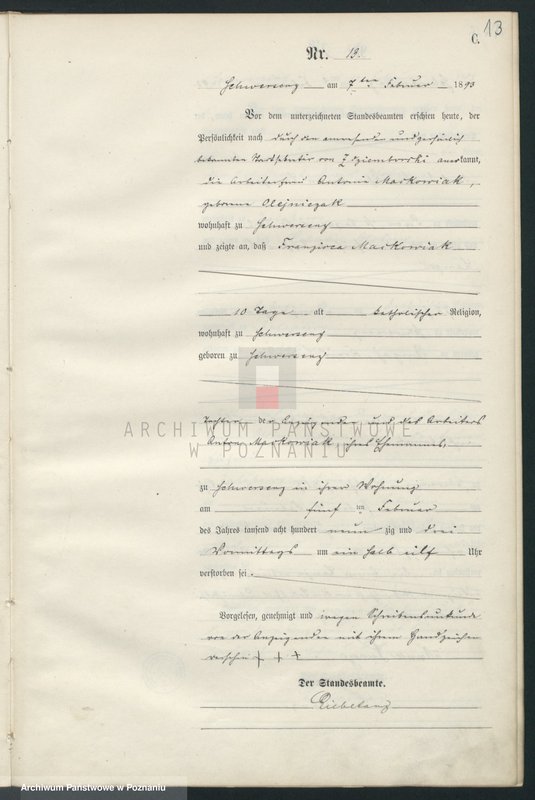 13
C.
Nr. 13.
Schwersenz am 7ten Februar 1893
Vor dem unterzeichneten Standesbeamten erschien heute, der
Persönlichkeit nach durch den anwesenden und persönlich
bekannten Stadtsekretär von Dziembowski anerkannt,
die Arbeiterfrau Antonie Maćkowiak,
geborene Olejniczak
wohnhaft zu Schwersenz
und zeigte an, daß Franzisca Maćkowiak
10 Tage alt katholischer Religion,
wohnhaft zu Schwersenz
geboren zu Schwersenz
Tochter der Anzeigenden und des Arbeiters
ARCHIWUM PAŃSTWOWE
W POZNANIU
Anton Maćkowiak, ihres Ehemannes,
zu Schwersenz in ihrer Wohnung
am fünf ten Februar
des Jahres tausend acht hundert neun zig und drei
Vormittags um ein halb eilf Uhr
verstorben sei.
Vorgelesen, genehmigt und wegen Schreibensunkunde
von der Anzeigenden mit ihrem Handzeichen
versehen + + +
Der Standesbeamte.
Archiwum Państwowe w Poznaniu